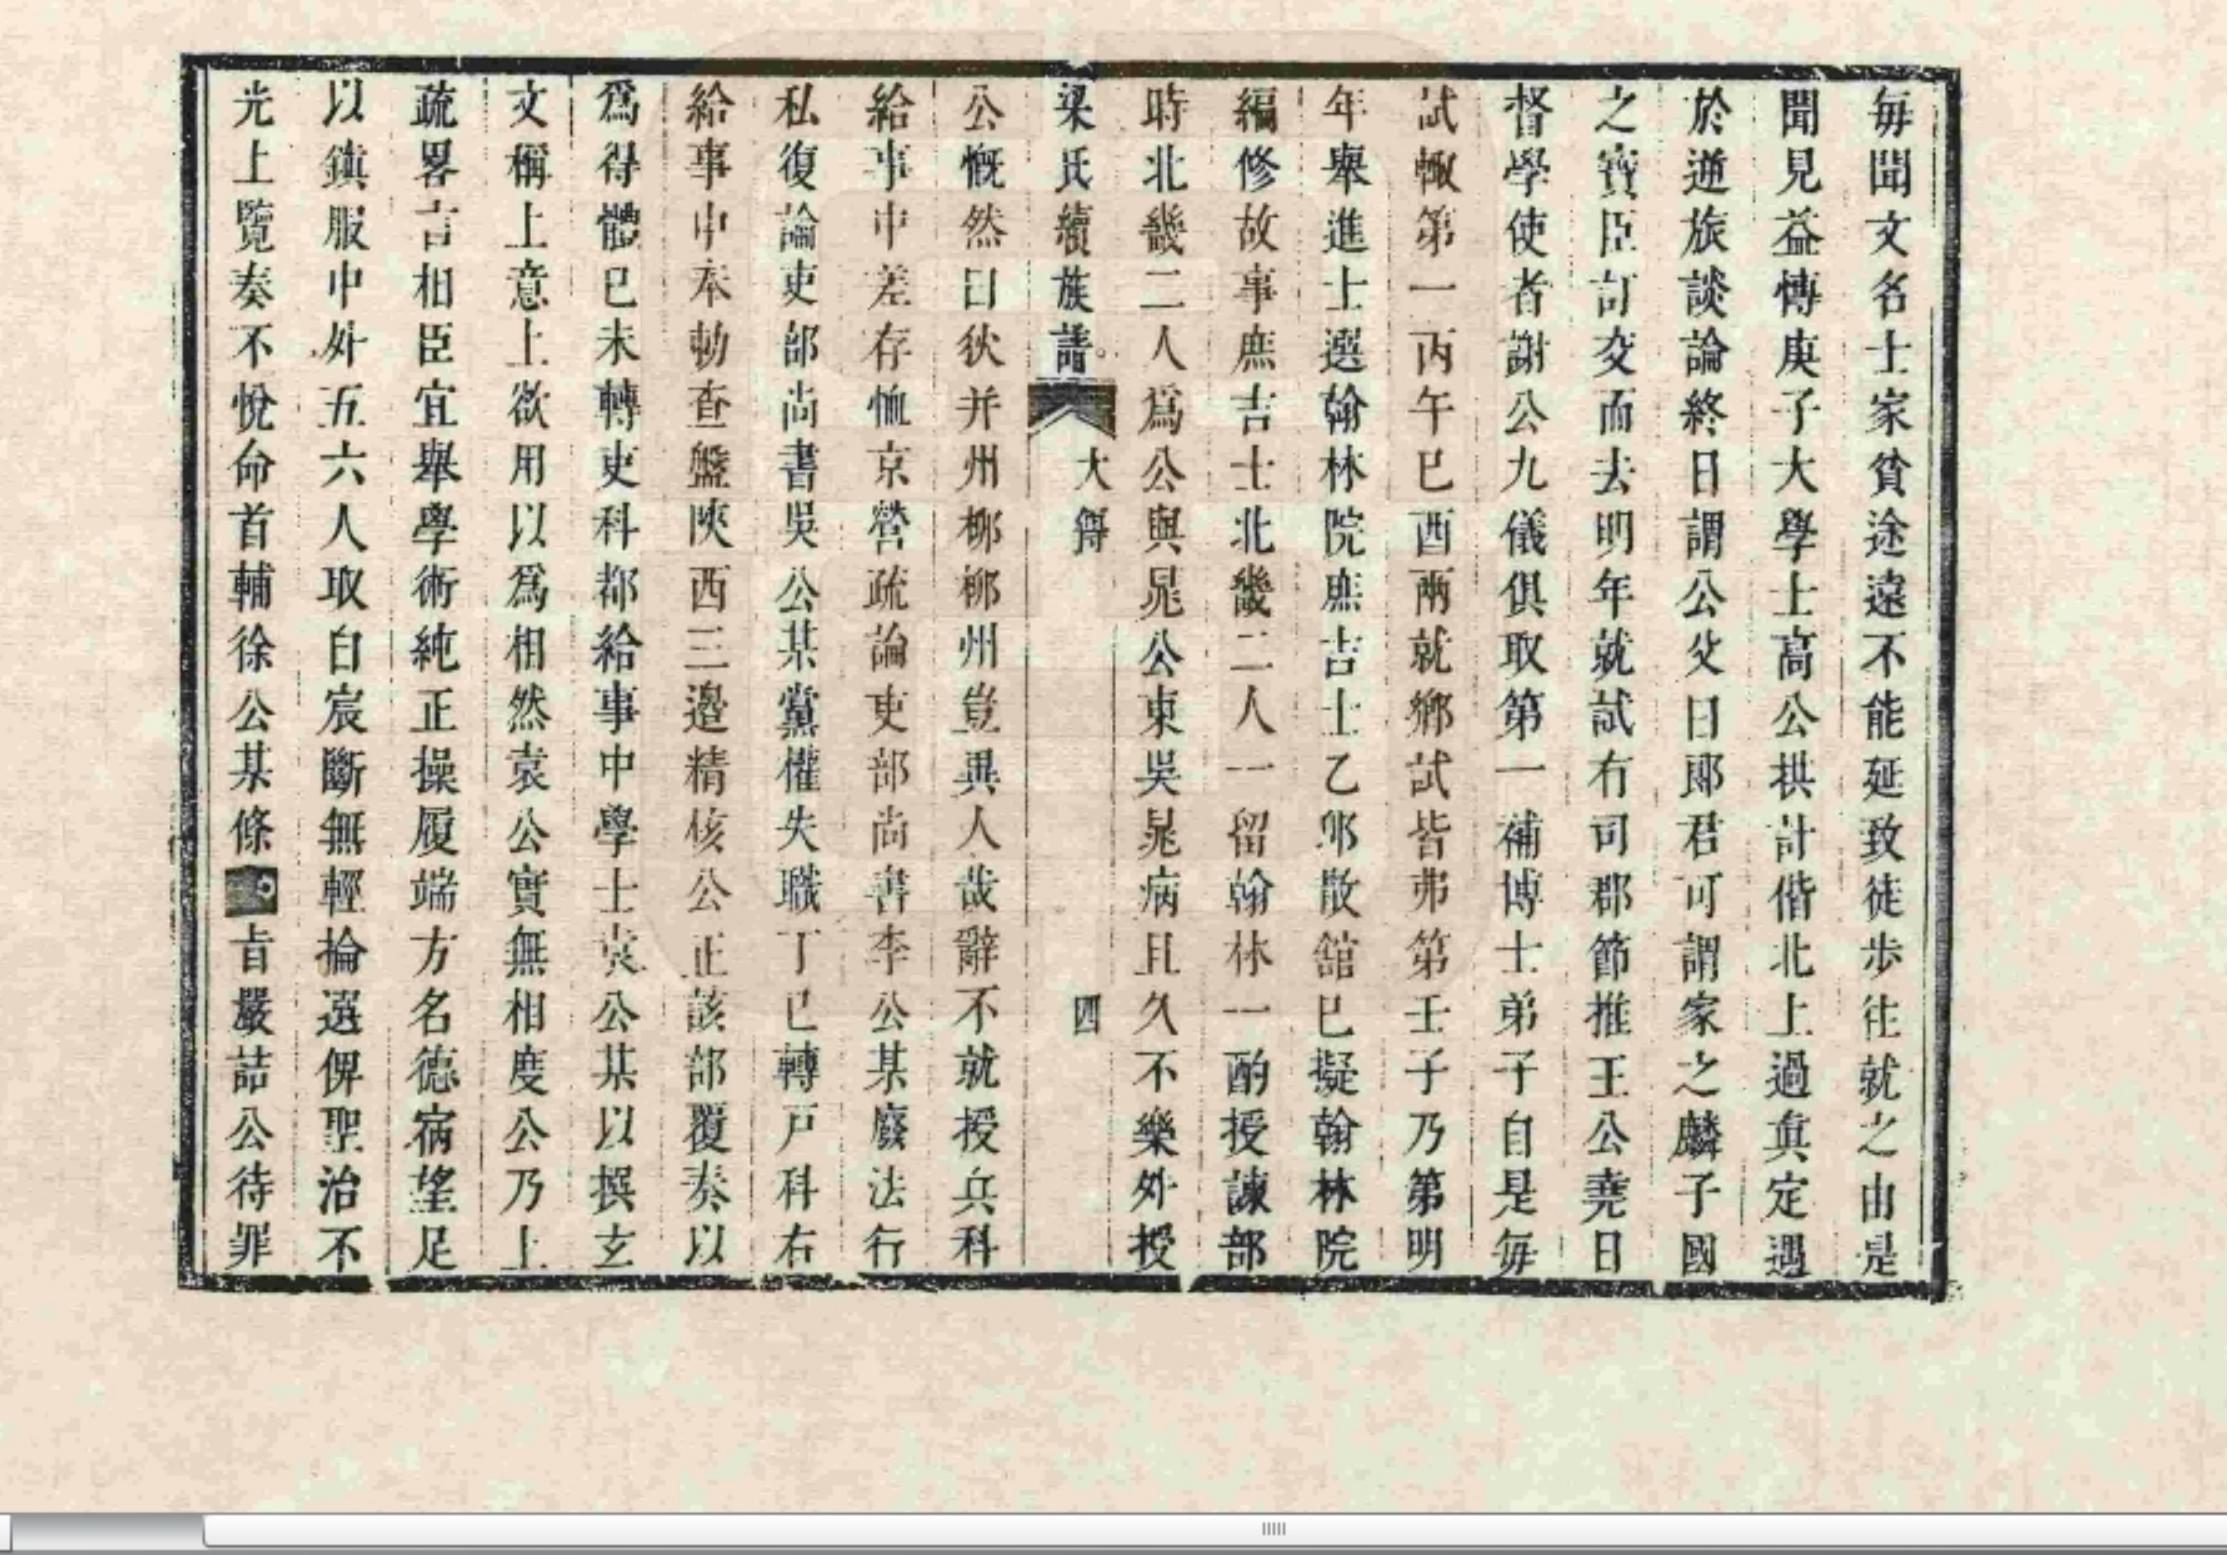 每聞文名士家貧途遠不能延致徒步往就之由是
聞見益博庚子大學士高公拱計偕北上過眞定遇
於逆旅談論終日謂公父曰郎君可謂家之麟子國
之寶臣訂交而去明年就試有司郡節推王公堯日
督學使者謝公九儀俱取第一補博士弟子自是每
試輙第一丙午巳酉兩就鄉試皆弗第壬子乃第明
年舉進士選翰林院庶吉士乙夘散舘巳擬翰林院
編修故事庶吉士北畿二人一留翰林一酌授諫部
時北畿二人爲公與晁公東吳晁病且久不樂外授
梁氏續族譜 大傳 四
公慨然曰狄并州柳柳州豈異人哉辭不就授兵科
給事中差存恤京營疏論吏部尚書李公某廢法行
私復論吏部尚書吳公某黨權失職丁巳轉戸科右
給事中奉勑查盤陝西三邊精核公正該部覆奏以
爲得體巳未轉吏科都給事中學士袁公某以撰玄
文稱上意上欲用以爲相然袁公實無相度公乃上
疏畧言相臣宜舉學術純正操履端方名德宿望足
以鎮服中外五六人取自宸斷無輕掄選俾聖治不
光上覽奏不悅命首輔徐公某條旨嚴詰公待罪